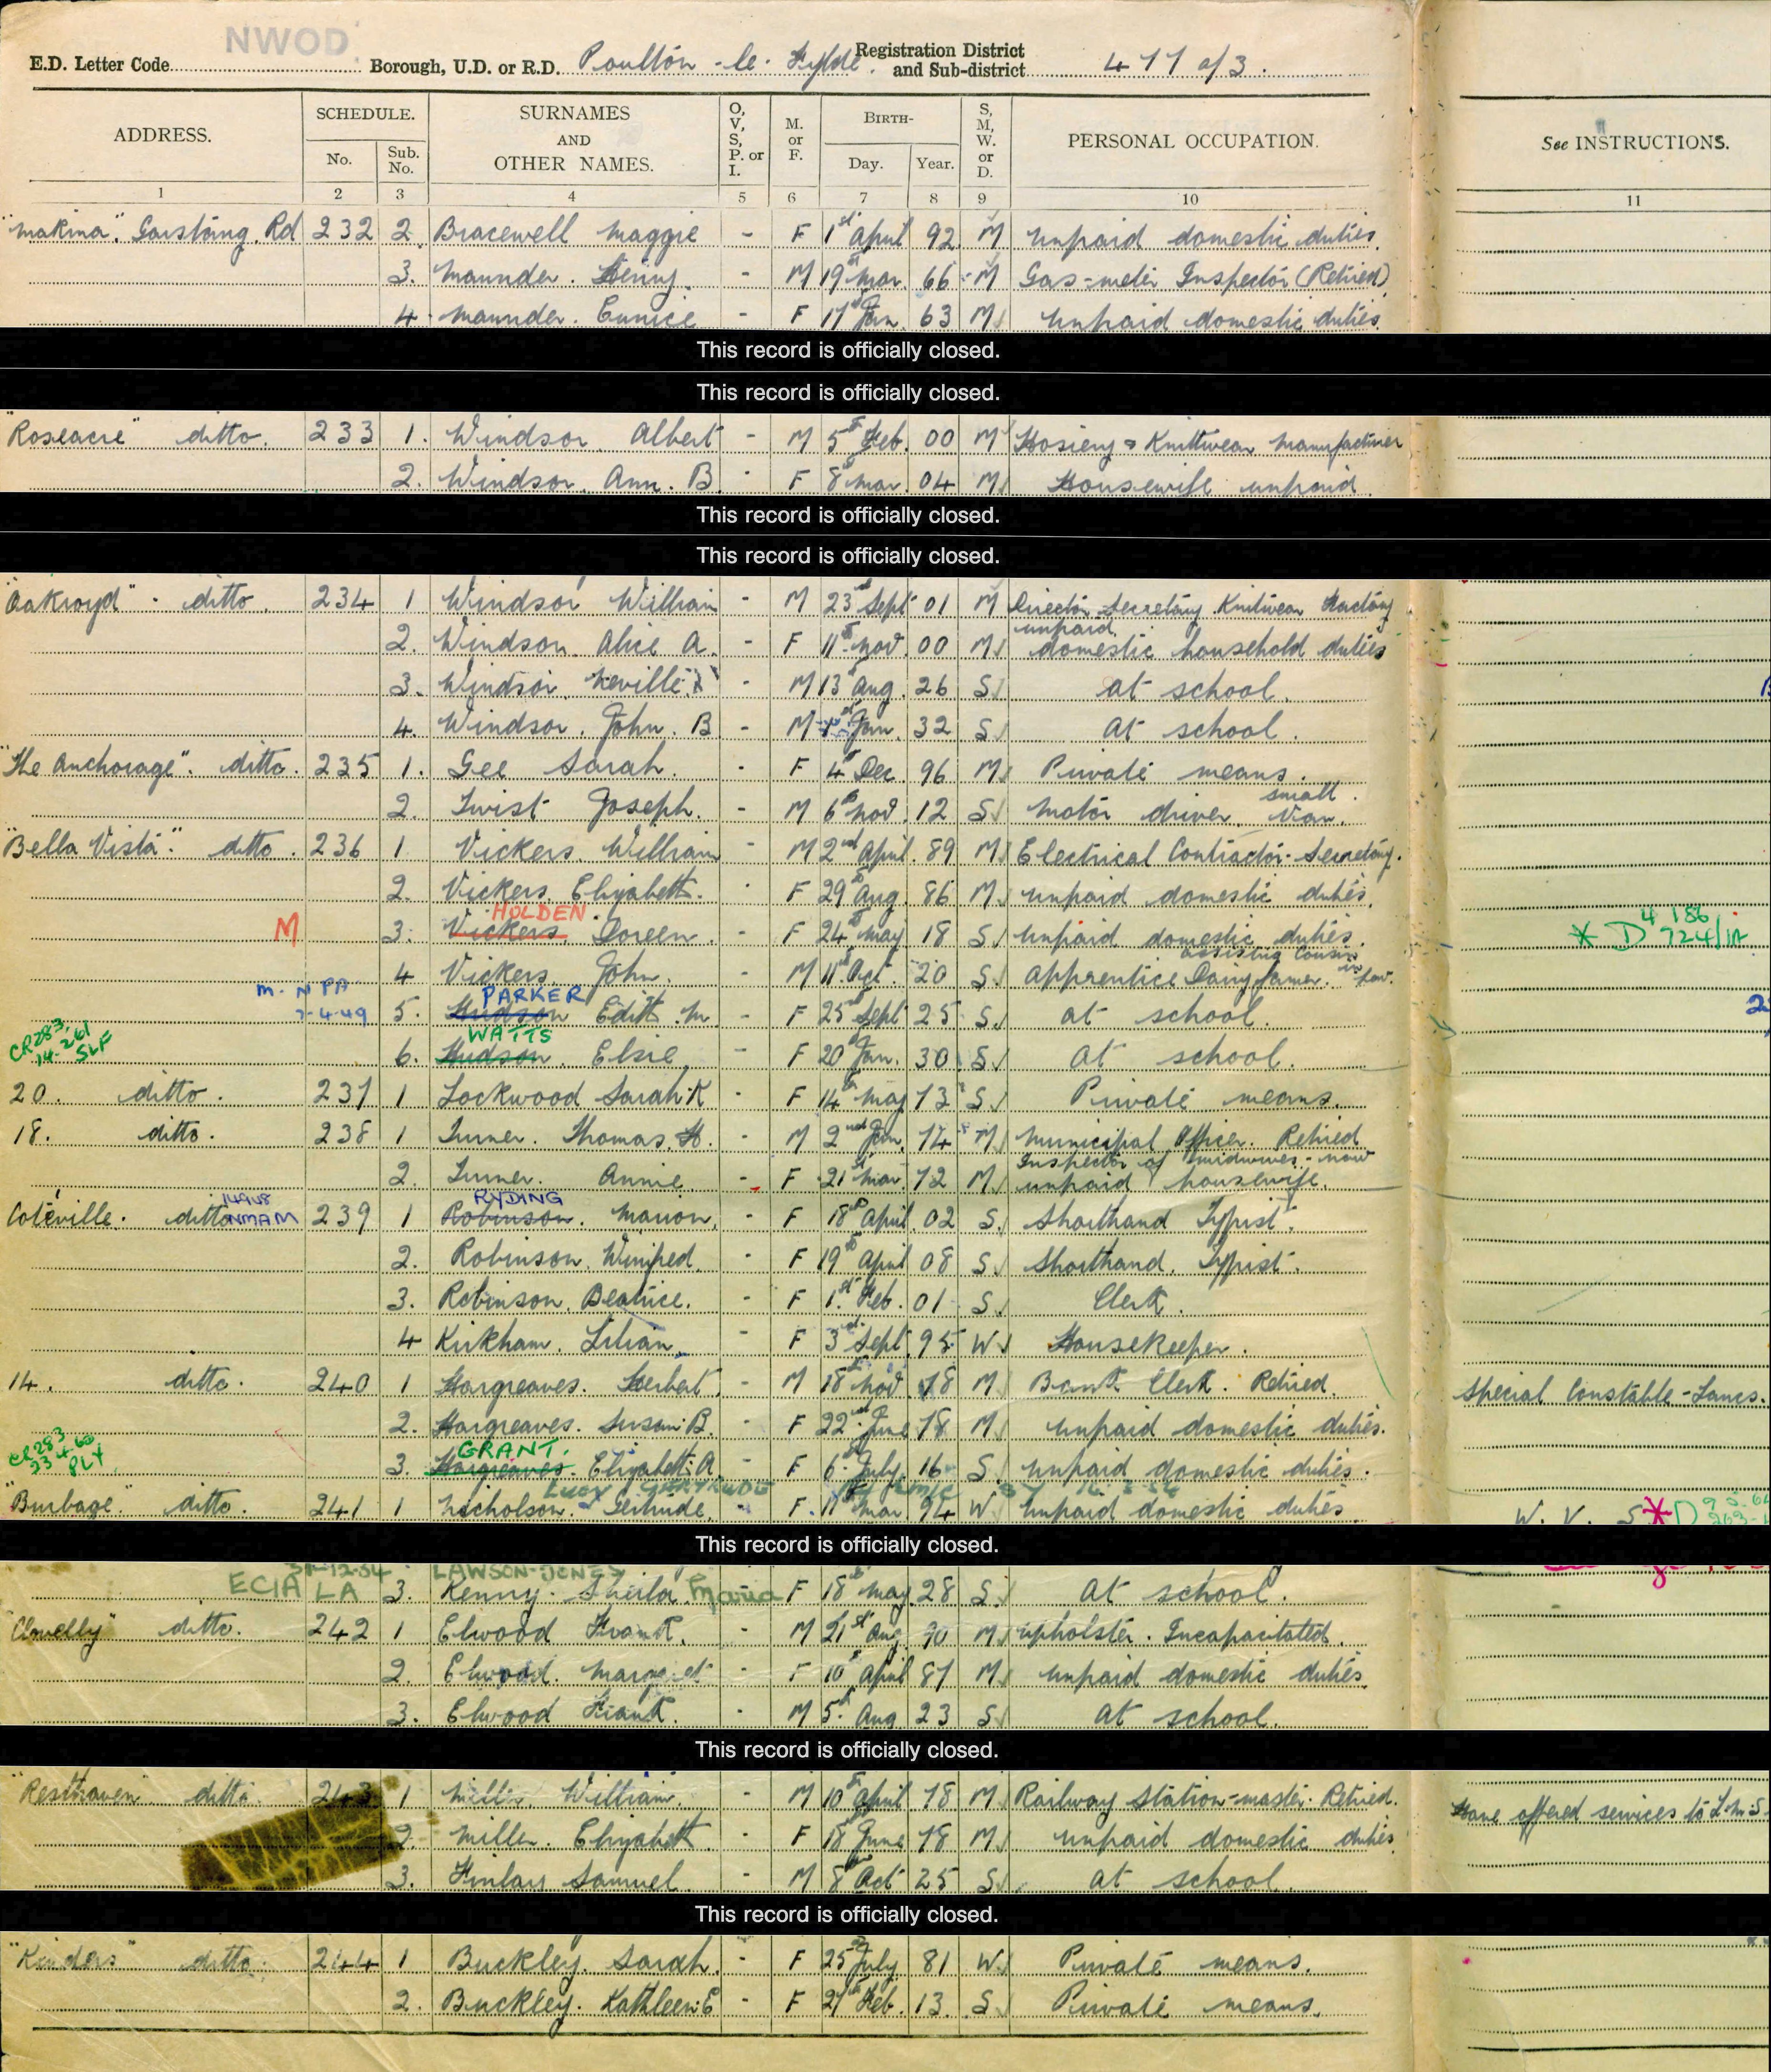 NWOD
E.D. Letter Code Borough, U.D. or R.D. Poulton-le-Fylde. Registration District and Sub-district 477 a/3.
ADDRESS. SCHEDULE. No. Sub. No. SURNAMES AND OTHER NAMES. O, V, S, P. or I. M. or F. BIRTH- Day. Year. S, M, W. or D. PERSONAL OCCUPATION. See INSTRUCTIONS.
1 2 3 4 5 6 7 8 9 10 11
"Makina". Garstang. Rd 232 2 Bracewell Maggie - F 1st April 92 M Unpaid domestic duties.
3. Maunder. Henry. - M 19th Mar. 66 M Gas-meter Inspector (Retired)
4. Maunder. Eunice - F 17th Jan. 63 M Unpaid domestic duties.
This record is officially closed.
This record is officially closed.
"Roseacre" ditto. 233 1. Windsor Albert - M 5th Feb. 00 M Hosiery & Knitwear Manufacturer
2. Windsor. Ann. B. - F 8th Mar. 04 M Housewife unpaid.
This record is officially closed.
This record is officially closed.
"Oakroyd" - ditto. 234 1 Windsor William - M 23rd Sept 01 M Director Secretary Knitwear Factory
2. Windsor. Alice A. - F 11th Nov. 00 M unpaid domestic household duties
3. Windsor. Neville - M 13th Aug. 26 S at school.
4. Windsor. John. B - M 1st Jan. 32 S at school.
"The Anchorage". ditto. 235 1. Gee Sarah. - F 4th Dec. 96 M Private means.
2. Twist Joseph. - M 6th Nov. 12 S Motor driver. small Van.
"Bella Vista". ditto. 236 1 Vickers. William - M 2nd April. 89 M Electrical Contractor-Secretary.
2. Vickers. Elizabeth. - F 29th Aug. 86 M unpaid domestic duties.
HOLDEN
M 3. Vickers. Doreen. - F 24th May 18 S unpaid domestic duties. * D 4 186 724/1A
4 Vickers. John. - M 11th Oct. 20 S apprentice Dairy farmer. assisting Cousin
PARKER
7-4-49 5. Hudson Edith. M - F 25th Sept 25 S at school.
WATTS
CR283 SLF 6. Hudson. Elsie - F 20th Jan. 30 S at school.
20. ditto. 237 1 Lockwood Sarah. K - F 14th May 73 S Private means.
18. ditto. 238 1 Turner. Thomas. H. - M 2nd Jan. 74 M Municipal Officer. Retired
2. Turner. Annie. - F 21st Mar. 72 M Inspector of midwives - now unpaid housewife.
RYDING
Coteville. ditto NMAM 239 1 Robinson. Marion. - F 18th April. 02 S. Shorthand Typist.
2. Robinson. Winifred. - F 19th April 08 S Shorthand. Typist.
3. Robinson. Beatrice. - F 1st Feb. 01 S. Clerk.
4 Kirkham. Lilian. - F 3rd Sept. 95 W Housekeeper.
14. ditto. 240 1 Hargreaves. Herbert. - M 18th Nov 78 M Bank Clerk. Retired. Special Constable-Lancs.
2. Hargreaves. Susan B. - F 22nd June 78 M unpaid domestic duties.
GRANT.
CR283 PLY 3. Hargreaves. Elizabeth A. - F 6th July. 16 S. unpaid domestic duties.
LUCY GERTRUDE
"Burbage" ditto. 241 1 Nicholson. Gertrude. - F. 11th Mar. 94 W unpaid domestic duties W. V. S *D
This record is officially closed.
LAWSON-JONES
ECIA LA 3. Kenny. Sheila Maria - F 18th May 28 S. at school.
"Clovelly" ditto. 242 1 Elwood Frank. - M 21st Aug 90 M upholster. Incapacitated.
2. Elwood. Margaret - F 10th April 87 M. unpaid domestic duties.
3. Elwood Frank. - M 5th Aug 23 S at school.
This record is officially closed.
"Resthaven" ditto. 243 1 Miller. William. - M 10th April 78 M Railway Station-master. Retired. Have offered services to L.M.S
2. Miller. Elizabeth. - F 18th June 78 M unpaid domestic duties
3. Finlay Samuel - M 8th Oct 25 S. at school
This record is officially closed.
"Kinders" ditto. 244 1 Buckley. Sarah. - F 25th July. 81 W. Private means.
2. Buckley. Kathleen. E - F 27th Feb. 13. S. Private means.